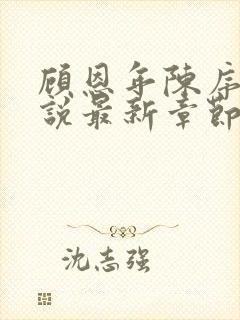 顾恩年陈序
说最新章节
沈志强